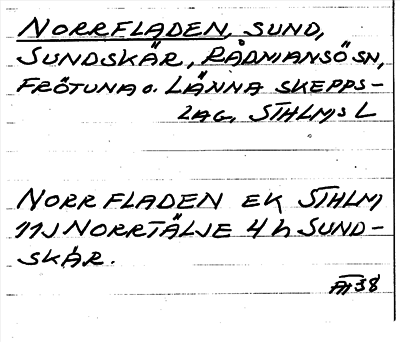 NORRFLADEN, SUND,
SUNDSKÄR, RÅDMANSÖ SN,
FRÖTUNA o. LÄNNA SKEPPS-
LAG, STHLMS L
NORRFLADEN EK STHLM
11J NORRTÄLJE 4 h SUND-
SKÄR.
38